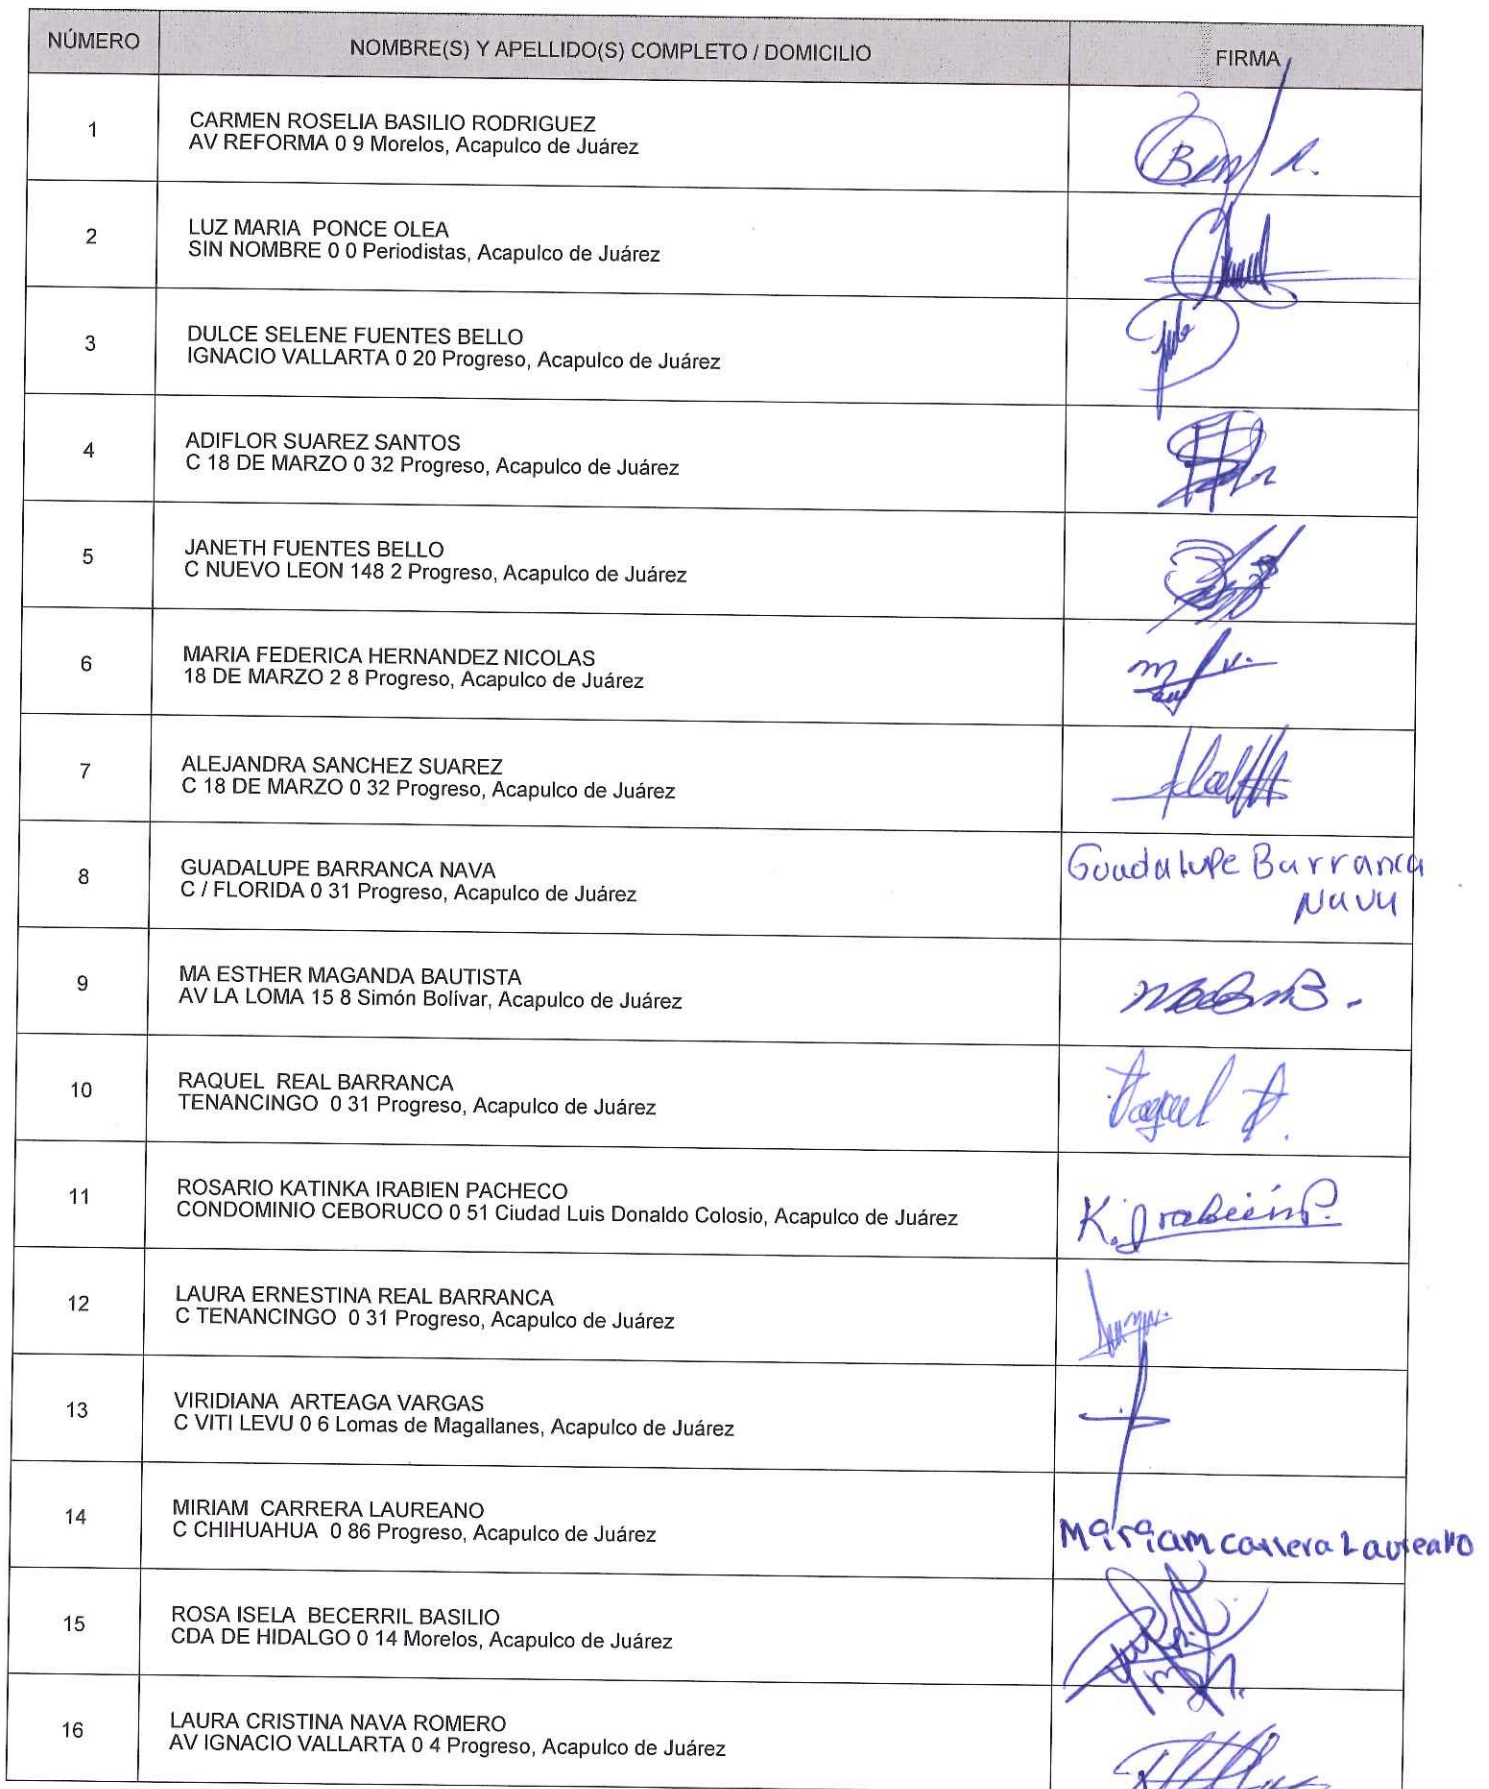 NÚMERO NOMBRE(S) Y APELLIDO(S) COMPLETO / DOMICILIO FIRMA
1 CARMEN ROSELIA BASILIO RODRIGUEZ
AV REFORMA 0 9 Morelos, Acapulco de Juárez
2 LUZ MARIA PONCE OLEA
SIN NOMBRE 0 0 Periodistas, Acapulco de Juárez
3 DULCE SELENE FUENTES BELLO
IGNACIO VALLARTA 0 20 Progreso, Acapulco de Juárez
4 ADIFLOR SUAREZ SANTOS
C 18 DE MARZO 0 32 Progreso, Acapulco de Juárez
5 JANETH FUENTES BELLO
C NUEVO LEON 148 2 Progreso, Acapulco de Juárez
6 MARIA FEDERICA HERNANDEZ NICOLAS
18 DE MARZO 2 8 Progreso, Acapulco de Juárez
7 ALEJANDRA SANCHEZ SUAREZ
C 18 DE MARZO 0 32 Progreso, Acapulco de Juárez
8 GUADALUPE BARRANCA NAVA Guadalupe Barranca
C / FLORIDA 0 31 Progreso, Acapulco de Juárez Nava
9 MA ESTHER MAGANDA BAUTISTA
AV LA LOMA 15 8 Simón Bolívar, Acapulco de Juárez
10 RAQUEL REAL BARRANCA Raquel
TENANCINGO 0 31 Progreso, Acapulco de Juárez
11 ROSARIO KATINKA IRABIEN PACHECO K. Irabién P.
CONDOMINIO CEBORUCO 0 51 Ciudad Luis Donaldo Colosio, Acapulco de Juárez
12 LAURA ERNESTINA REAL BARRANCA
C TENANCINGO 0 31 Progreso, Acapulco de Juárez
13 VIRIDIANA ARTEAGA VARGAS
C VITI LEVU 0 6 Lomas de Magallanes, Acapulco de Juárez
14 MIRIAM CARRERA LAUREANO Miriam Carrera Laureano
C CHIHUAHUA 0 86 Progreso, Acapulco de Juárez
15 ROSA ISELA BECERRIL BASILIO
CDA DE HIDALGO 0 14 Morelos, Acapulco de Juárez
16 LAURA CRISTINA NAVA ROMERO
AV IGNACIO VALLARTA 0 4 Progreso, Acapulco de Juárez